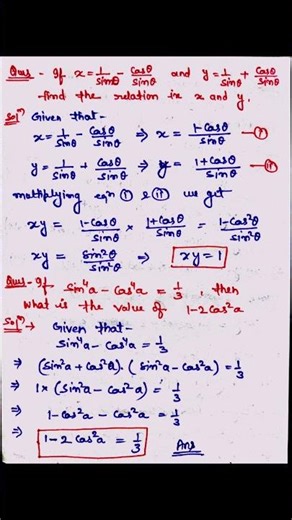 Ques - If x = 1/sinθ - cosθ/sinθ and y = 1/sinθ + cosθ/sinθ
find the relation in x and y.
Solⁿ) Given that-
x = 1/sinθ - cosθ/sinθ ⇒ x = 1-cosθ/sinθ —(i)
y = 1/sinθ + cosθ/sinθ ⇒ y = 1+cosθ/sinθ —(ii)
multiplying eqn (i) & (ii) we get
xy = 1-cosθ/sinθ × 1+cosθ/sinθ = 1-cos²θ/sin²θ
xy = sin²θ/sin²θ ⇒ xy = 1
Ques - If sin⁴a - cos⁴a = 1/3, then
what is the value of 1-2cos²a
Solⁿ) → Given that-
sin⁴a - cos⁴a = 1/3
⇒ (sin²a + cos²a) . (sin²a - cos²a) = 1/3
⇒ 1 x (sin²a - cos²a) = 1/3
⇒ 1 - cos²a - cos²a = 1/3
⇒ 1 - 2 cos²a = 1/3 Ans